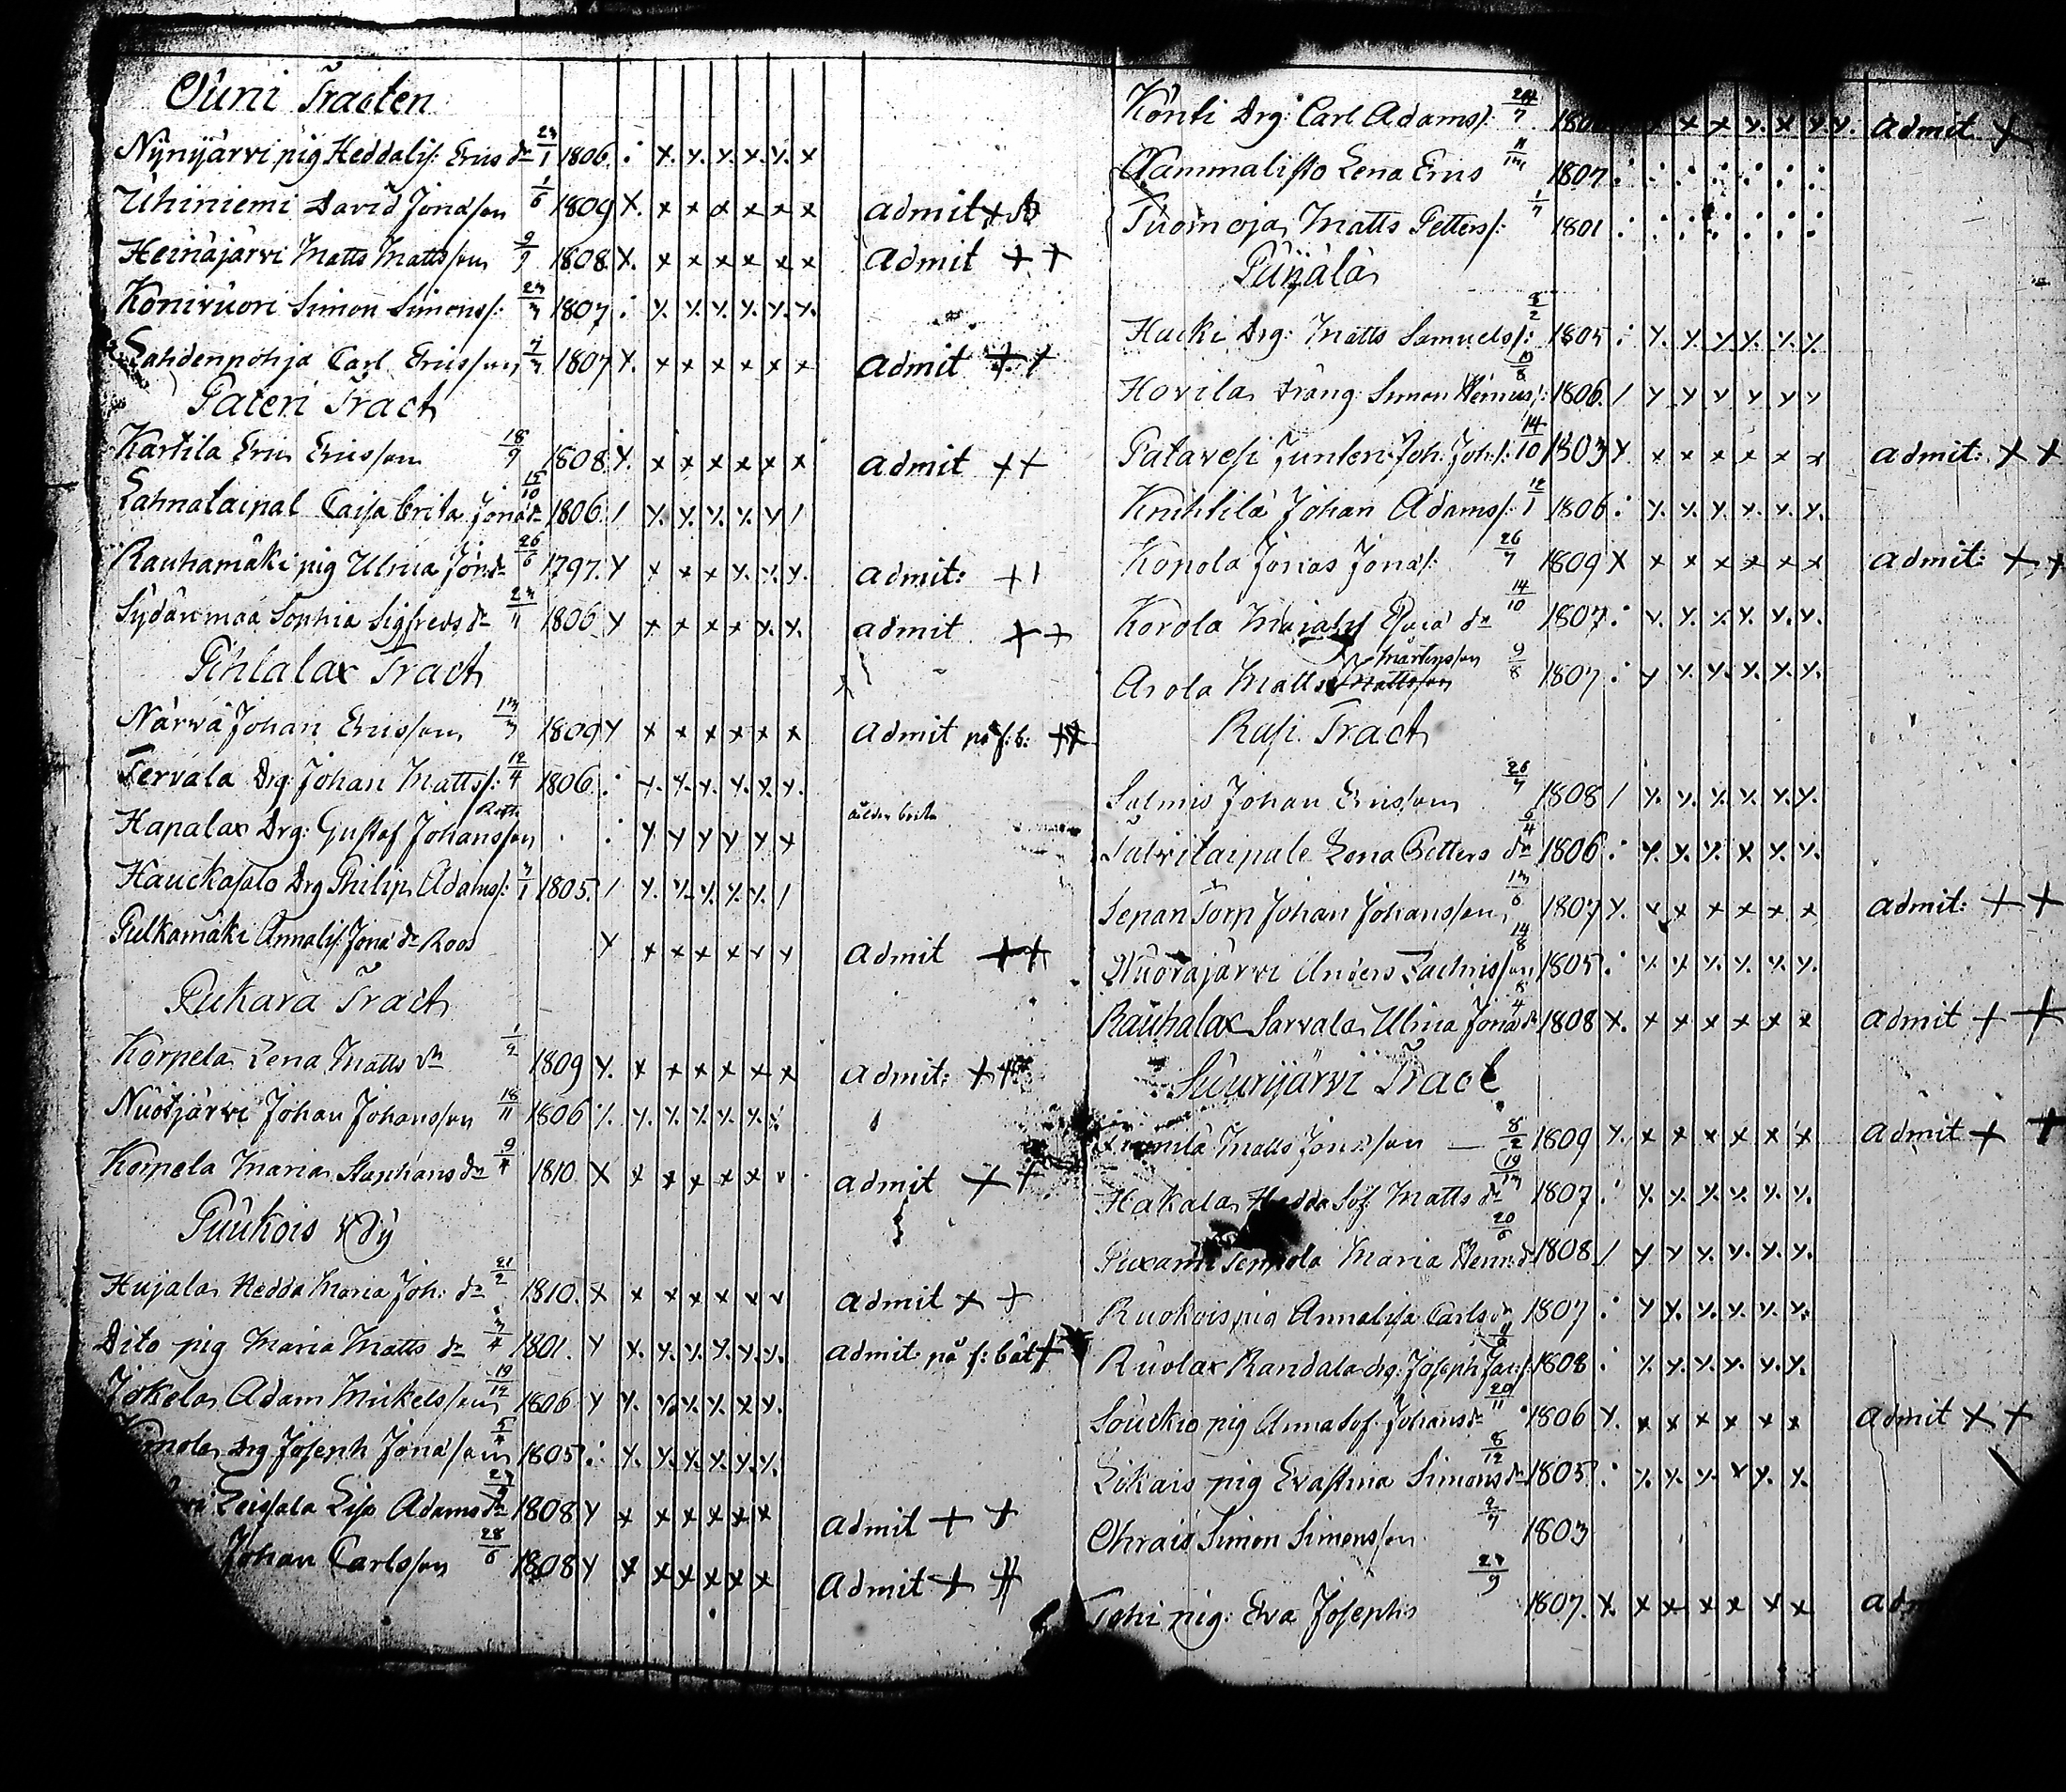 Ouni Tracten
Nÿnÿjärvi pig Heddalis: Erics dr 23/1 1806. · x. y. y. y. y. x
Uhiniemi David Jonasson 1/6 1809 X. x x x x x x admit x
Heinäjärvi Matts Mattsson 9/9 1808 X. x x x x x x admit + +
Konivuori Simon Simonss: 23/3 1807 · y. y. y. y. y. y.
Lahdenpohja Carl Ericsson 7/3 1807 X. x x x x x x admit + +
Pateri Tract
Kartila Eric Ericsson 18/9 1808 Y. x x x x x x admit + +
Lahnataipal Caisa Brita Jonædr 15/10 1806 / y. y. y. y. y /
Rauhamäki pig Ulrica Jonædr 26/6 1797. Y x x x y. y. y. admit: + +
Sydänmaa Sophia Sigfreds dr 23/11 1806 Y x x x x y. y. admit + +
Pihlalax Tract
Närvä Johan Ericsson 13/3 1809 Y x x x x x x admit på f: b: + +
Tervala Drg: Johan Matts: 12/4 1806 : y. y. y. y. y. y.
Hapalax Drg: Gustaf Johansson Roth · y y y y y y
Hauckasalo Drg Philip Adams: 3/1 1805. / y. y. y. y. y. /
Pulkamäki Annalis: Jonæ dr Roos Y x x x x y y admit + +
Pukara Tract
Korpela Lena Matts dr 1/2 1809 Y. x x x x x x admit: + +
Nuotjärvi Johan Johansson 18/11 1806 y. y. y. y. y. y. y.
Korpela Maria Staphans dr 9/4 1810 X x x x x x v admit + +
Puukois By
Hujala Hedda Maria Joh: dr 21/2 1810. X x x x x y y admit + +
Dito pig Maria Matts dr 3/4 1801. Y x. y. y. y. y. y. admit: på f: bät +
Jokela Adam Mickelsson 19/12 1806 Y y. y. y. y. x y.
drg Joseph Jonasson 5/4 1805 : y. y. y. y. y. y.
Leisala Liso Adams dr 1808 Y x x x x x x admit + +
Johan Carlsson 28/6 1808 Y x x x x x x admit + +
Konti Drg: Carl Adams: 24/7 x x y. x y. y. admit x
Nammalisto Lena Erics 1807 : : : : : : :
Tuomoja Matts Petters: 1/7 1801 : : : : : : :
Pÿjälä
Hucki Drg: Matts Samuels: 3/2 1805 : y. y. y. y. y. y.
Hovila Dräng Simon Henrics: 19/8 1806. / y y y y y y
Patavesi Junkeri Joh: Joh: 14/10 1803 Y. x x x x x x admit: x x
Knihtilä Johan Adams: 12/1 1806 : y. y. y. y. y. y.
Kopola Jonas Jonas: 26/7 1809 X x x x x x x admit: + +
Korola Majalis dr 14/10 1807 : y. y. y. y. y. y.
Arola Matts Mattsson Mårtensson 9/8 1807 : y y. y. y. y. y.
Rasi Tract
Salmis Johan Ericsson 26/7 1808 / y. y. y. y. y. y.
Talvitaipale Lena Petters dr 6/4 1806 : y. y. y. x y. y.
Sepän Torp Johan Johansson 13/6 1807 Y. y x x x x x admit: + +
Nuorajärvi Anders Zachrisson 14/8 1805 : y. y y. y. y. y.
Rauhalax Sarvala Ulrica Jonædr 8/4 1808 X. x x x x x x admit + +
Suurijärvi Tract
Matts Jonasson — 8/2 1809 Y. x x x x x x admit + +
Hakala Hedda Sof: Matts dr 19/3 1807 : y. y. y. y. y. y.
Maria Henr: dr 20/6 1808 / y y y. y. y. y.
Ruokois pig Annalisa Carls dr 1807 : y y. y. y. y. y.
Ruolax Randala drg: Joseph 11/9 1808 : y. y. y. y. y. y.
Souckio pig Anna Sof: Johans dr 20/11 1806 Y. x x x x x x admit + +
Likais pig Evastina Simons dr 8/12 1805 : y. y. y. y y. y.
Ohrais Simon Simonsson 2/7 1803
pig: Eva Josephs 23/9 1807. X. x x x x x x